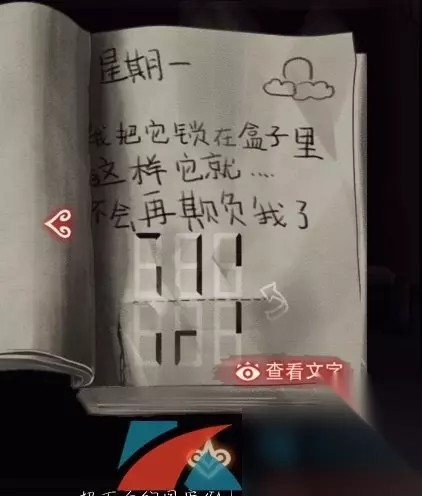 星期一
我把它锁在盒子里
这样它就....
不会再欺负我了
查看文字